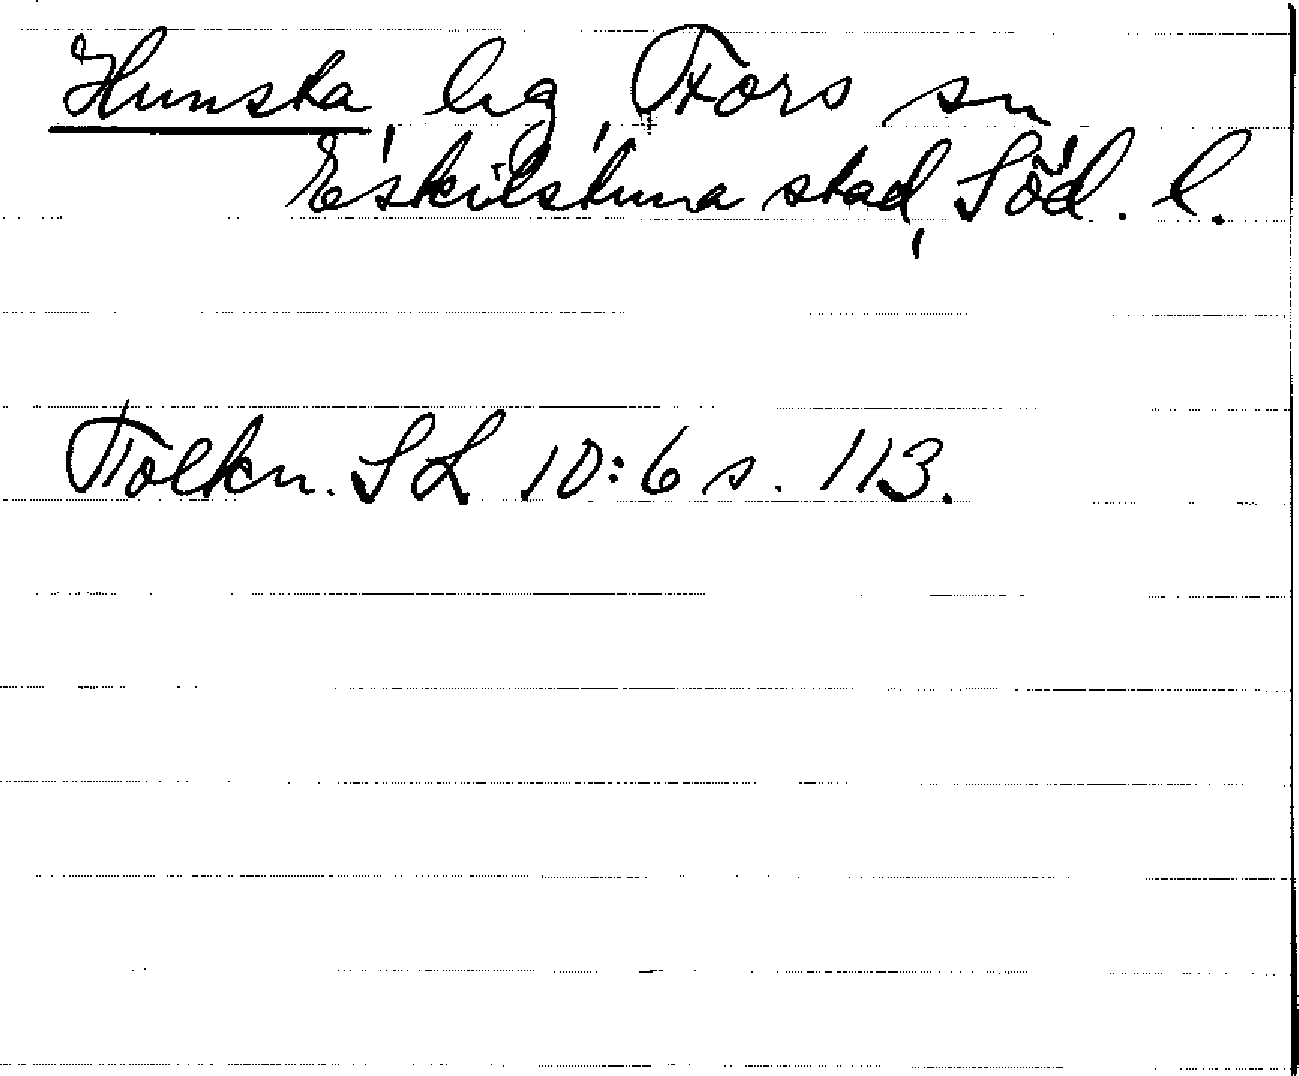 Hunska, lg, Fors sn
Eskilstuna stad, Söd. l.
Tolkn. SL 10:6 s. 113.